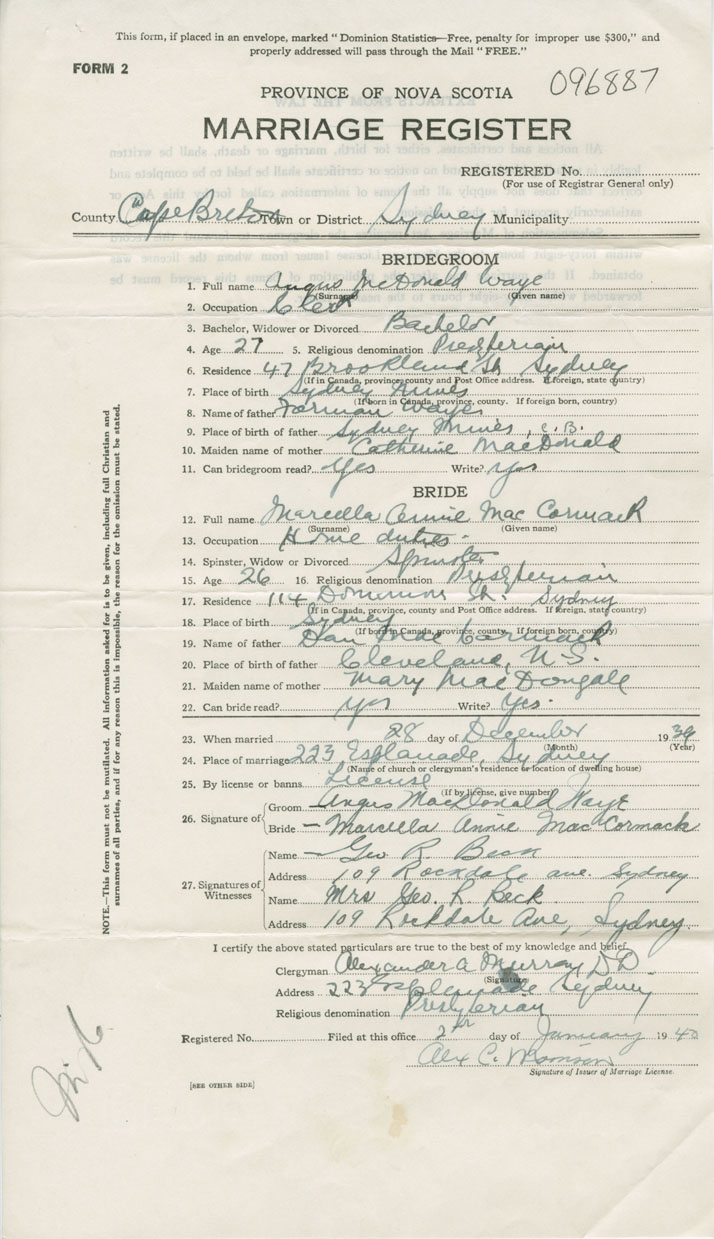 This form, if placed in an envelope, marked "Dominion Statistics—Free, penalty for improper use $300," and
properly addressed will pass through the Mail "FREE."
FORM 2
096887
PROVINCE OF NOVA SCOTIA
MARRIAGE REGISTER
REGISTERED No.
(For use of Registrar General only)
County Cape Breton Town or District Sydney Municipality
BRIDEGROOM
1. Full name Angus McDonald Waye
(Surname) (Given name)
2. Occupation
3. Bachelor, Widower or Divorced Bachelor
4. Age 27 5. Religious denomination Presbyterian
6. Residence 47 Brookland St. Sydney
(If in Canada, province, county and Post Office address. If foreign, state country)
7. Place of birth Sydney Mines
(If born in Canada, province, county. If foreign born, country)
8. Name of father Forman Waye
9. Place of birth of father Sydney Mines, C.B.
10. Maiden name of mother Catherine MacDonald
11. Can bridegroom read? Yes Write? Yes
BRIDE
12. Full name Marcella Annie MacCormack
(Surname) (Given name)
13. Occupation Home duties
14. Spinster, Widow or Divorced Spinster
15. Age 26 16. Religious denomination Presbyterian
17. Residence 114 Dominion St. Sydney
(If in Canada, province, county and Post Office address. If foreign, state country)
18. Place of birth Sydney
(If born in Canada, province, county. If foreign born, country)
19. Name of father Dan MacCormack
20. Place of birth of father Cleveland, N.S.
21. Maiden name of mother Mary MacDougall
22. Can bride read? Yes Write? Yes.
23. When married 28 day of December 1939
(Month) (Year)
24. Place of marriage 223 Esplanade, Sydney
(Name of church or clergyman's residence or location of dwelling house)
25. By license or banns License
(If by license, give number)
26. Signature of
Groom Angus MacDonald Waye
Bride — Marcella Annie MacCormack
27. Signatures of Witnesses
Name — Geo R. Beck
Address 109 Rockdale ave. Sydney
Name Mrs Geo. R. Beck
Address 109 Rockdale Ave, Sydney
I certify the above stated particulars are true to the best of my knowledge and belief.
Clergyman Alexander A Murray D.D.
(Signature)
Address 223 Esplanade Sydney
Religious denomination Presbyterian
Registered No. Filed at this office 2nd day of January 1940
Alex C.
Signature of Issuer of Marriage License.
[SEE OTHER SIDE]
NOTE.—This form must not be mutilated. All information asked for is to be given, including full Christian and
surnames of all parties, and if for any reason this is impossible, the reason for the omission must be stated.